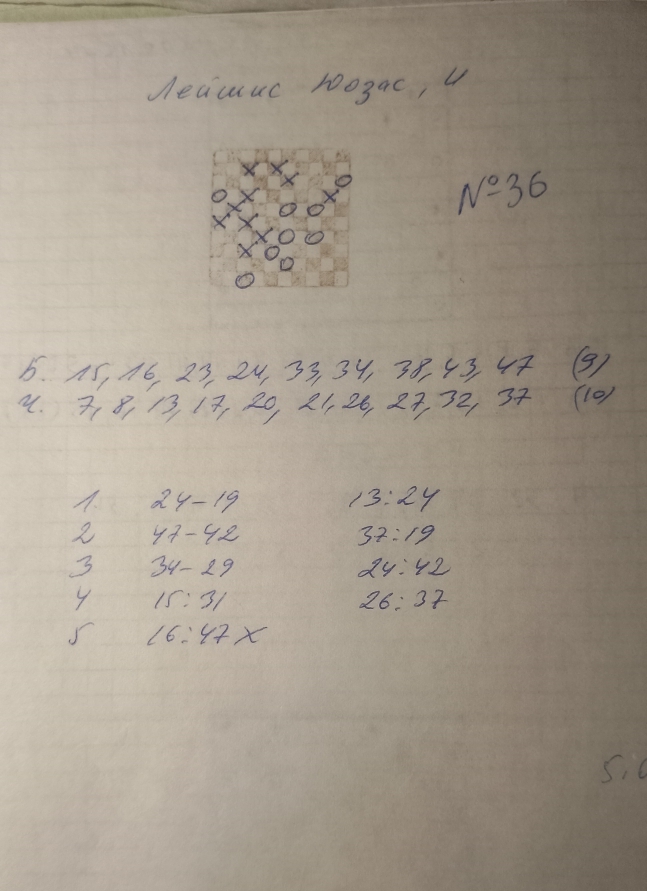 Лейшис Юозас, и
№36
Б. 15, 16, 23, 24, 33, 34, 38, 43, 47 (9)
Ч. 7, 8, 13, 17, 20, 21, 26, 27, 32, 37 (10)
1 24-19 13:24
2 47-42 37:19
3 34-29 24:42
4 15:31 26:37
5 16:47 X